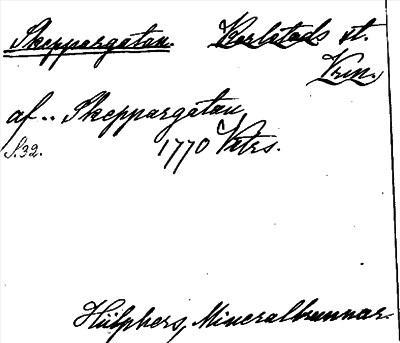 Skeppargatan. Karlstads st.
Vrm.
af.. Skeppargatan
S.32. 1770 Vttrs.
Hülphers, Mineralbrunnar.